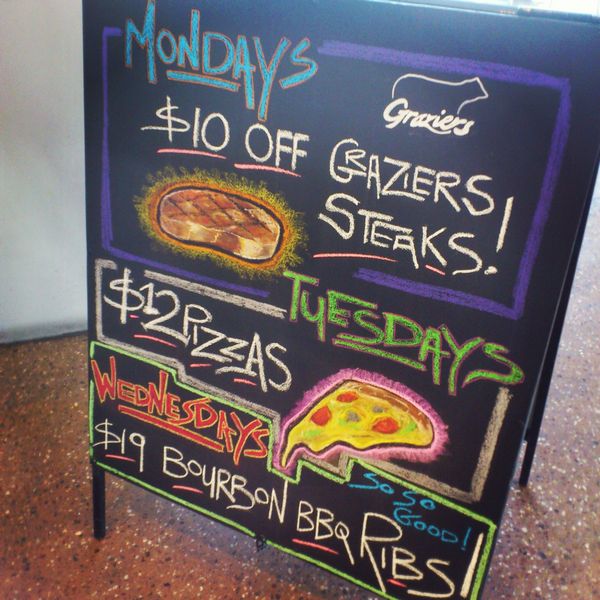 MONDAYS
Graziers
$10 OFF GRAZIERS
STEAKS!
TUESDAYS
$12 PIZZAS
WEDNESDAYS
$19 BOURBON BBQ RIBS!
SO SO
GOOD!